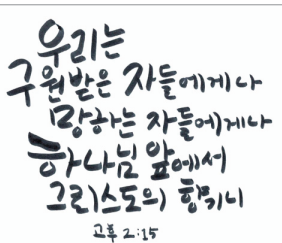 우리는
구원받은 자들에게나
망하는 자들에게나
하나님 앞에서
그리스도의 향기니
고후 2:15